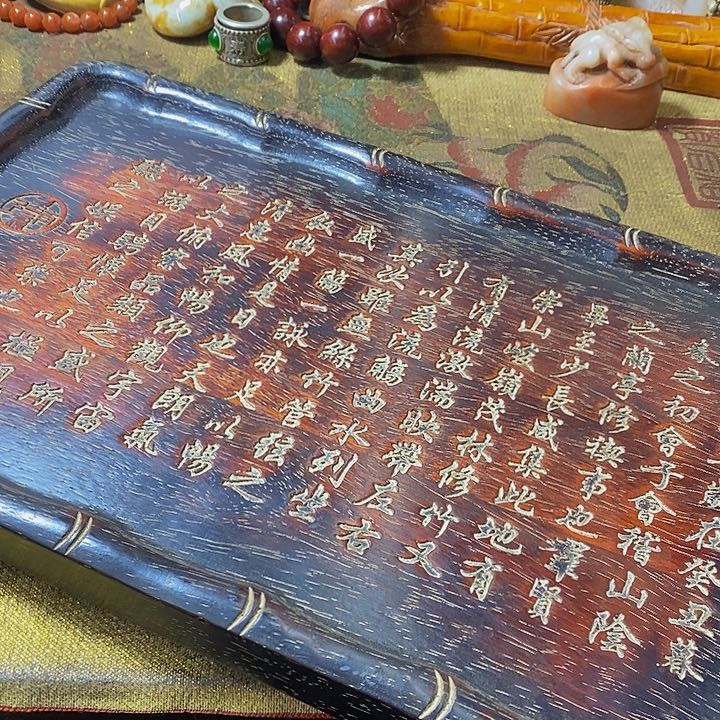 歲在癸丑暮
春之初會于會稽山陰
之蘭亭修禊事也羣賢
畢至少長咸集此地有
崇山峻嶺茂林修竹又
有清流激湍映帶左右
引以為流觴曲水列坐
其次雖無絲竹管絃之
盛一觴一詠亦足以暢
敘幽情是日也天朗氣
清惠風和暢仰觀宇宙
之大俯察品類之盛所
以游目騁懷足以極
聽之娛信可樂也